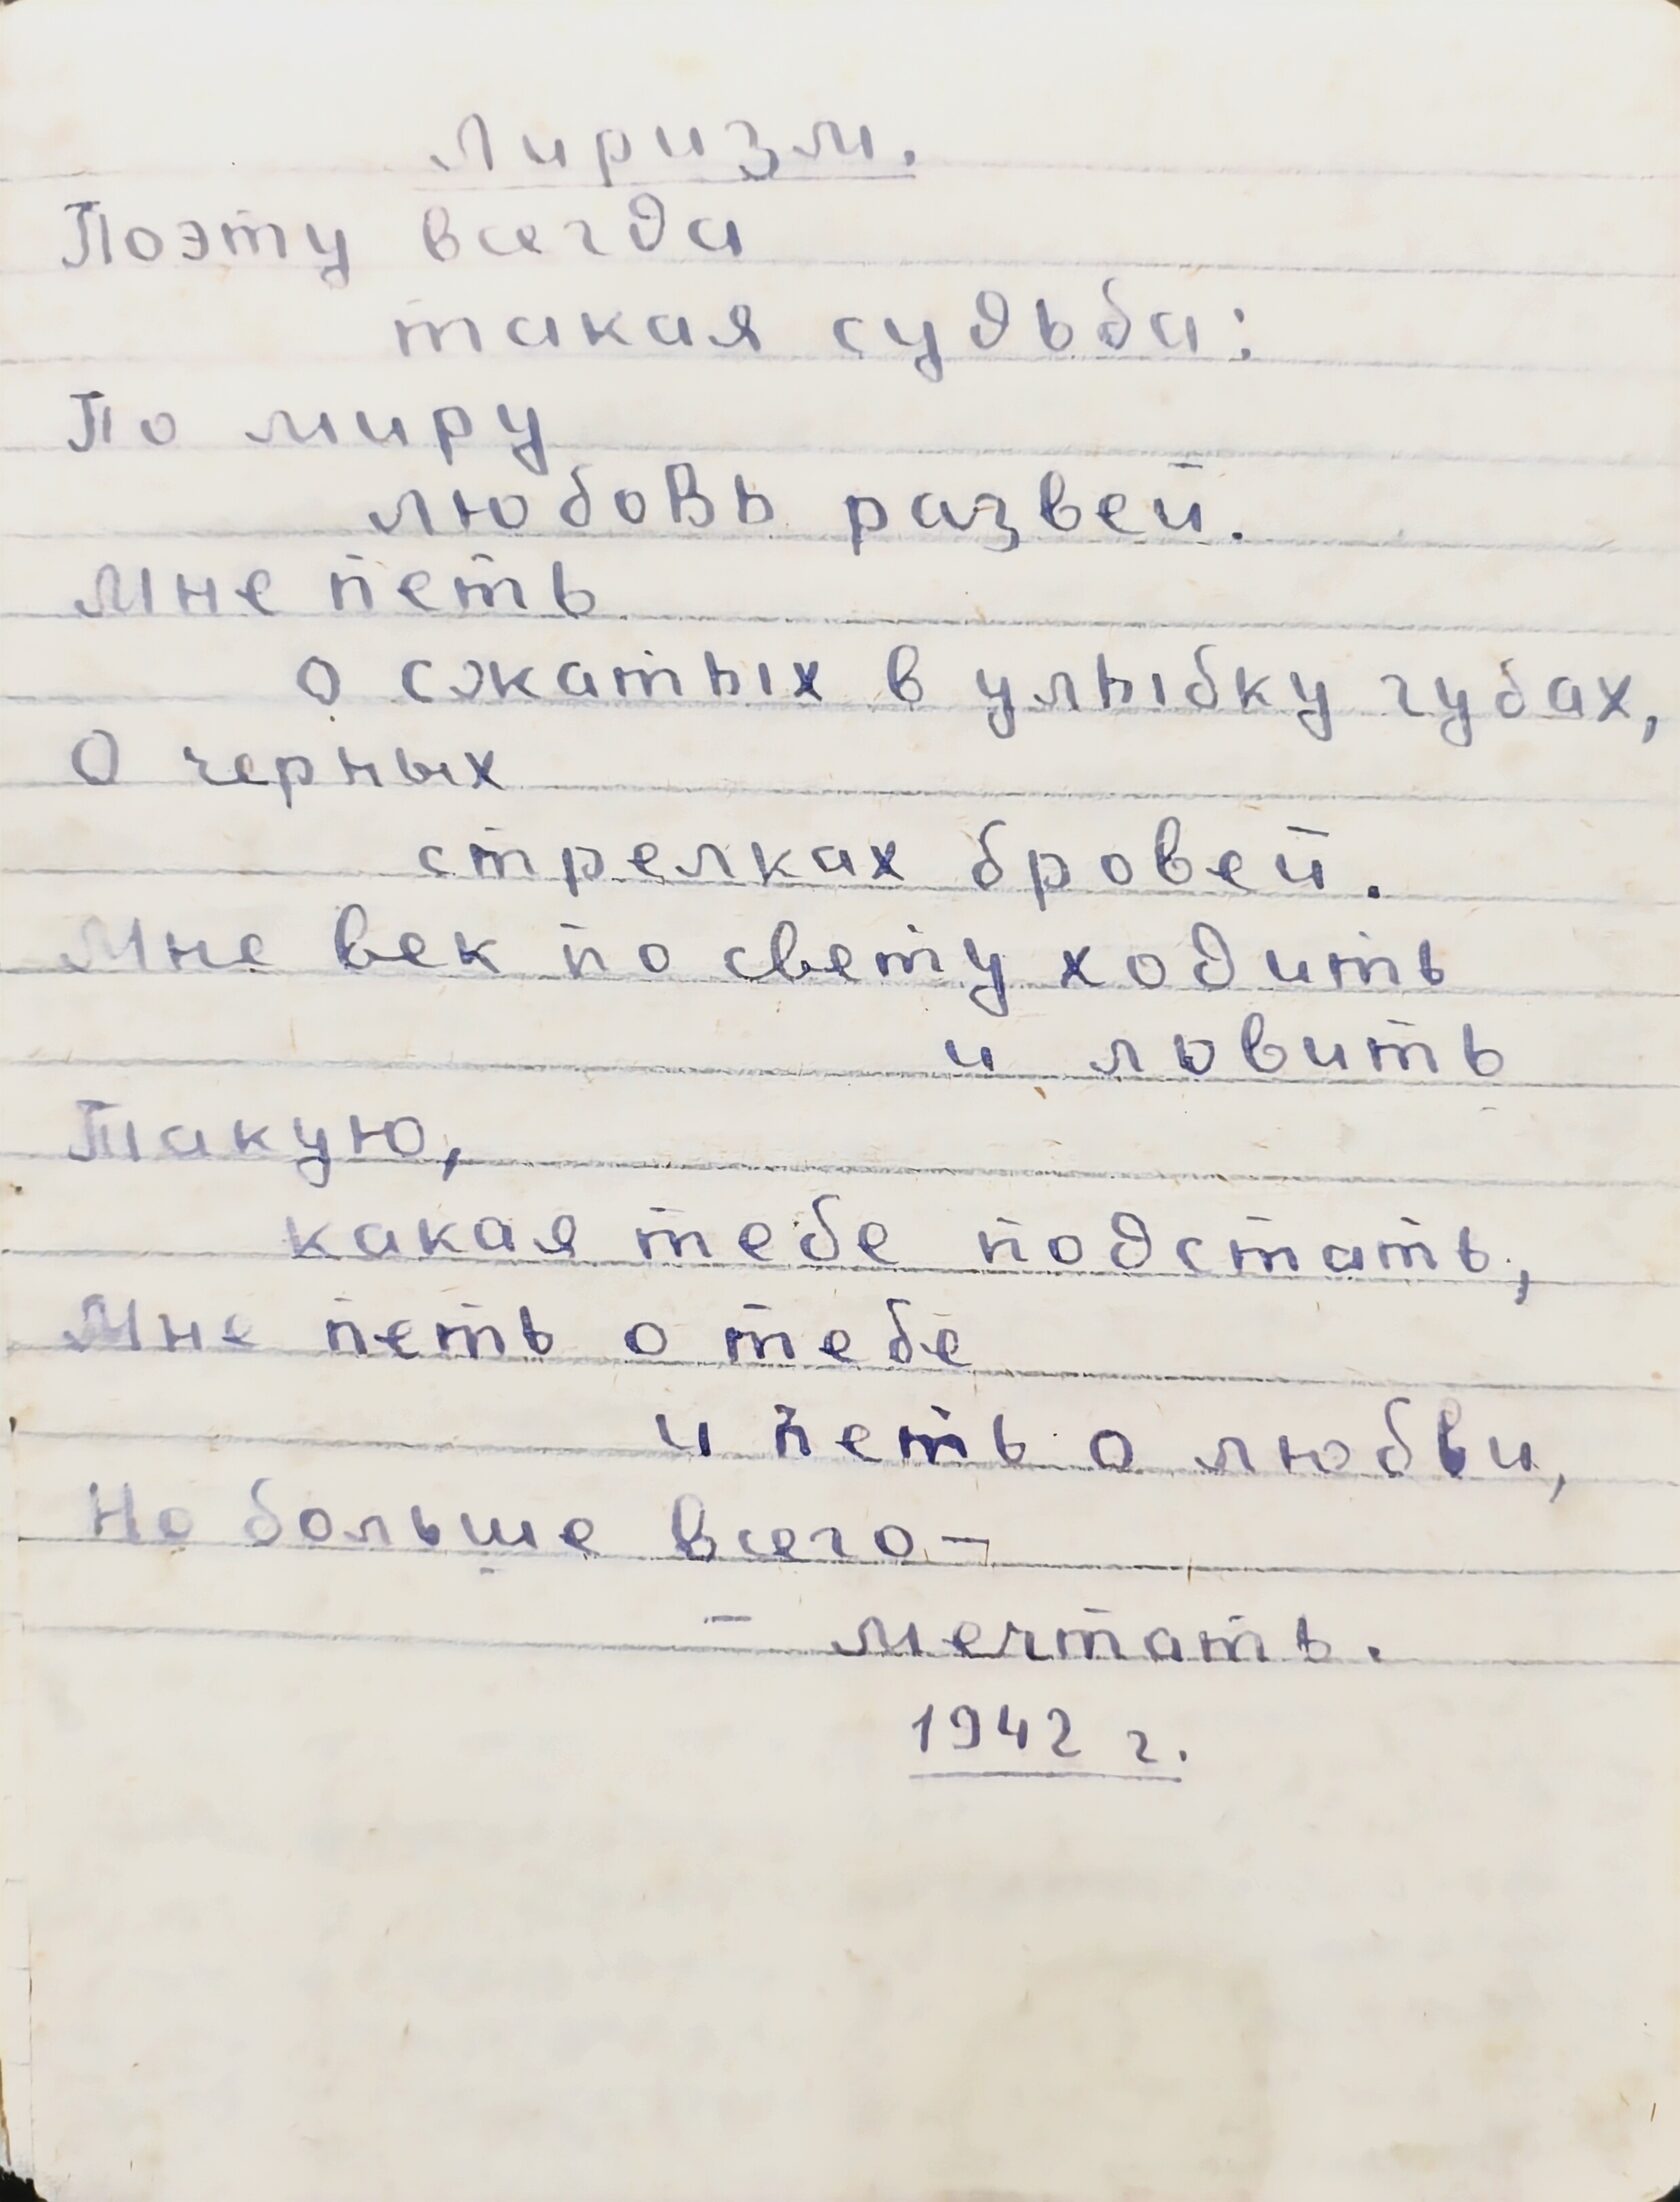 Лиризм.
Поэту всегда
такая судьба:
По миру
любовь развей.
Мне петь
о сжатых в улыбку губах,
О черных
стрелках бровей.
Мне век по свету ходить
и ловить
Такую,
какая тебе подстать,
Мне петь о тебе
и петь о любви,
Но больше всего –
– мечтать.
1942 г.